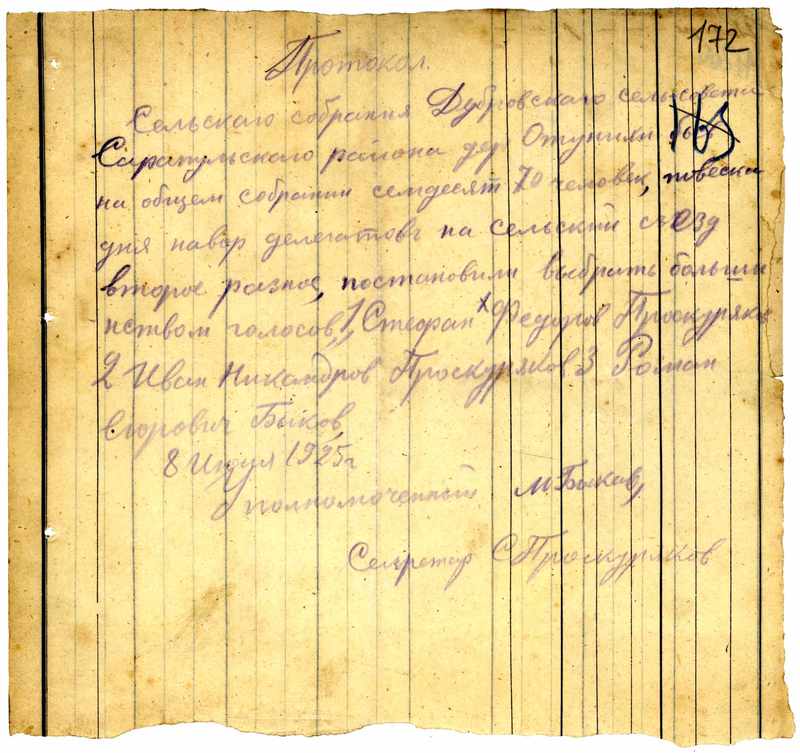 172
Протокол.
Сельскаго собрания Дубровскаго сельсовета
Сарапульскаго района дер Отуниям
на общем собрании семдесят 70 человек, повеска
дня навор делегатовъ на сельский съезд
второе разное, постановили выбрать больши
нством голосов, 1, Стефан Федоров Проскуряков
2 Иван Никандров Проскуряков 3 Роман
Егорович Быков,
8 Июля 1925 г
Уполномоченный М. Быков,
Секретар С Проскуряков